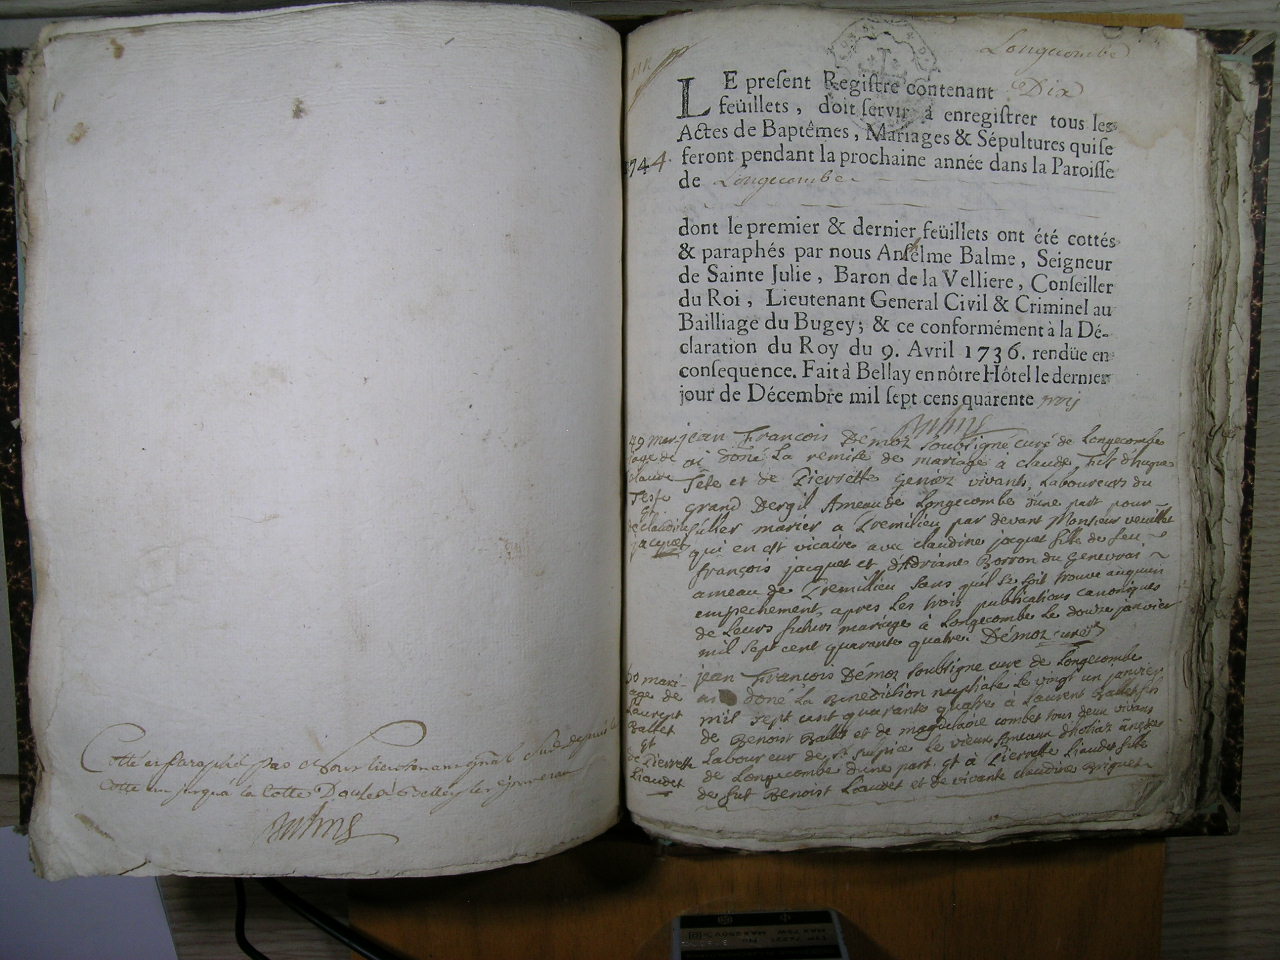 Cotté et Paraphé par Nous lieutenant gñal Civil depuis la
Cotte un jusqu'à la Cotte Belley
Longecombe
LE present Registre contenant Dix
feüillets, doit servir à enregistrer tous les
Actes de Baptêmes, Mariages & Sépultures qui se
1744. feront pendant la prochaine année dans la Paroisse
de Longecombe
dont le premier & dernier feüillets ont été cottés
& paraphés par nous Anselme Balme, Seigneur
de Sainte Julie, Baron de la Velliere, Conseiller
du Roi, Lieutenant General Civil & Criminel au
Bailliage du Bugey; & ce conformément à la Dé-
claration du Roy du 9. Avril 1736. rendüe en
consequence. Fait à Bellay en nôtre Hôtel le dernier
jour de Décembre mil sept cens quarente trois
49 mar-
iage de
Claude
Teste
et
de claudine
jacquet
jean François Démoz soubsigne curé de Longecombe
ai doné La remise de mariage à claude fils d'hugues
Tête et de Pierrette Genéoz vivants, Laboureurs du
grand Dergil Ameau de Longecombe d'une part pour
s'aller marier a Tremilieu par devant Monsieur veuillet
qui en est vicaire avec claudine jacquet fille de feu
françois jacquet et d'Adriane Borron du Genevrai
ameau de Tremilieu sans qu'il se soit trouvé aucquun
empechement apres Les trois publications canoniques
de Leurs futurs mariage à Longecombe Le douze janvier
mil sept cent quarante quatre. Démoz curé
50 mari-
age de
Laurent
Ballet
et
de Pierrette
Liaudet
jean François Démoz soubsigne curé de Longecombe
ai doné La Benediction nuptiale Le vingt un janvier
mil sept cent quarante quatre à Laurent Ballet fils
de Benoist Ballet et de magdelaine combet tous deux vivans
Laboureur de st sulpice Le vieux Ameaux
de Longecombe d'une part. et à Pierrette Liaudet fille
de fut Benoist Liaudet et de vivante claudine Briguet